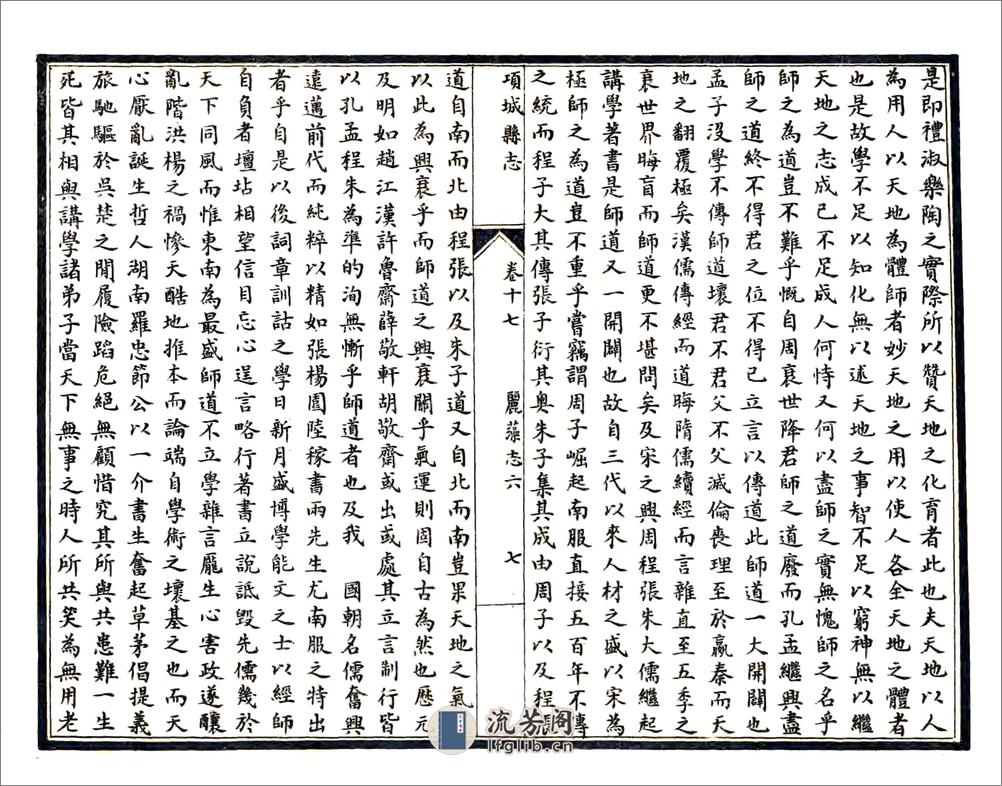 是即禮淑樂陶之實際所以贊天地之化育者此也夫天地以人
為用人以天地為體師者妙天地之用以使人各全天地之體者
也是故學不足以知化無以述天地之事智不足以窮神無以繼
天地之志成己不足成人何恃又何以盡師之實無愧師之名乎
師之為道豈不難乎慨自周衰世降君師之道廢而孔孟繼興盡
師之道終不得君之位不得已立言以傳道此師道一大開闢也
孟子沒學不傳師道壞君不君父不父滅倫喪理至於嬴秦而天
地之翻覆極矣漢儒傳經而道晦隋儒續經而言雜直至五季之
衰世界晦盲而師道更不堪問矣及宋之興周程張朱大儒繼起
講學著書是師道又一開闢也故自三代以來人材之盛以宋為
極師之為道豈不重乎嘗竊謂周子崛起南服直接五百年不傳
之統而程子大其傳張子衍其奧朱子集其成由周子以及程張
項城縣志 卷十七 麗藻志六 七
道自南而北由程張以及朱子道又自北而南豈果天地之氣
以此為興衰乎而師道之興衰關乎氣運則固自古為然也歷元
及明如趙江漢許魯齋薛敬軒胡敬齋或出或處其立言制行皆
以孔孟程朱為準的洵無慚乎師道者也及我 國朝名儒奮興
遠邁前代而純粹以精如張楊園陸稼書兩先生尤南服之特出
者乎自是以後詞章訓詁之學日新月盛博學能文之士以經師
自負者壇坫相望信目忘心逞言略行著書立說詆毀先儒幾於
天下同風而惟東南為最盛師道不立學雜言龐生心害政遂釀
亂階洪楊之禍慘天酷地推本而論端自學術之壞基之也而天
心厭亂誕生哲人湖南羅忠節公以一介書生奮起草茅倡提義
旅馳驅於吳楚之閒履險蹈危絕無顧惜究其所與共患難一生
死皆其相與講學諸弟子當天下無事之時人所共笑為無用老
流芳阁
lfglib.cn